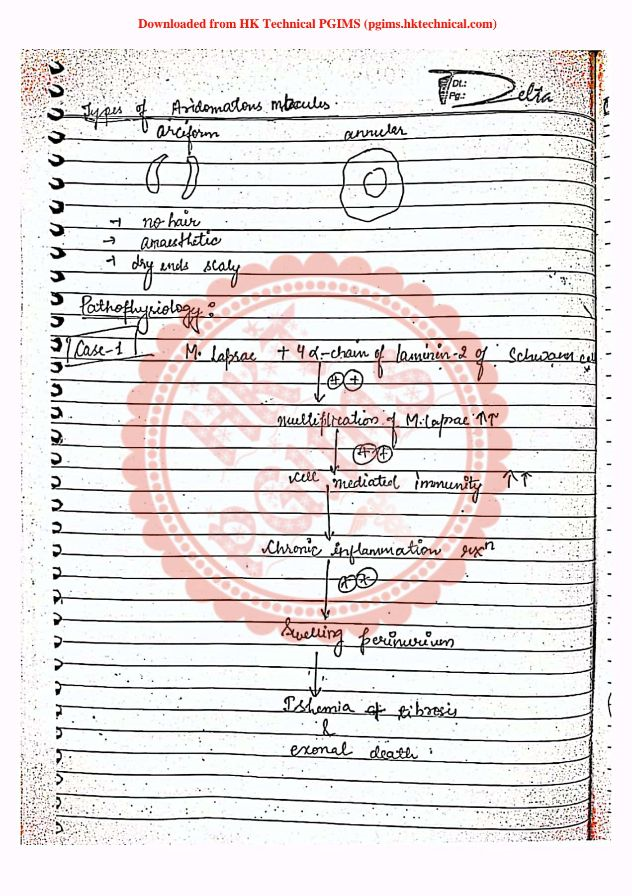 Downloaded from HK Technical PGIMS (pgims.hktechnical.com)
Delta
Dt.:
Pg.:
Types of
arciform annular
→ no hair
→ anaesthetic
→ dry ends scaly
Pathophysiology :
Case-1 M. Lapsae + 4 α-chain of laminin-2 of Schwann cell
++
multiplication of M. lapsae ↑↑
++
cell mediated immunity ↑↑
Chronic inflammation rxⁿ
++
Swelling perinurium
Ishemia of fibrosis
&
exonal death
HK
PGIMS